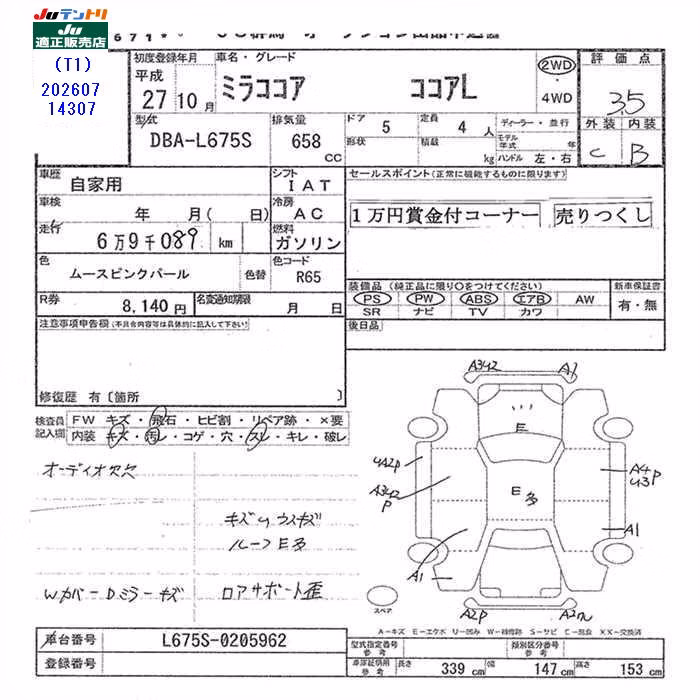 Juテントリ
Ju 適正販売店
(T1)
202607
14307
初度登録年月
車名・グレード
2WD
4WD
評価点
平成
27 10月
ミラココア
ココアL
3.5
型式
DBA-L675S
排気量
658 CC
ドア 5
定員 4 人
形状
積載 kg
ディーラー・並行
モデル年式 年
ハンドル 左・右
外装 内装
C B
車歴 自家用
シフト IAT
セールスポイント(正常に機能するものに限ります)
車検 年 月( 日)
冷房 AC
1万円賞金付コーナー 売りつくし
走行 6万9千089 km
燃料 ガソリン
色 ムースピンクパール 色替
色コード R65
装備品(純正品に限り○をつけてください)
新車保証書
PS PW ABS エアB AW
有・無
SR ナビ TV カワ
R券 8,140円
名変通知期限 月 日
注意事項申告欄(不具合内容等は具体的に記入して下さい)
後日品
修復歴 有〔箇所 〕
検査員記入欄
FW キズ・飛石・ヒビ割・リペア跡・×要
内装 キズ・汚レ・コゲ・穴・スレ・キレ・破レ
オーディオ欠
キズ
ルーフE多
WカバーDミラーキズ
ロアサポート歪
A3U2 A1
E
U2P
A3U2
P
E多
A4
U3P
A1
A1
A2P
スペア
A-キズ E-エクボ U-凹み W-補修跡 S-サビ C-腐食 XX-交換済
車台番号 L675S-0205962
型式指定番号 参考
類別区分番号 参考
登録番号
車庫証明用 参考
長さ 339 cm
幅 147 cm
高さ 153 cm